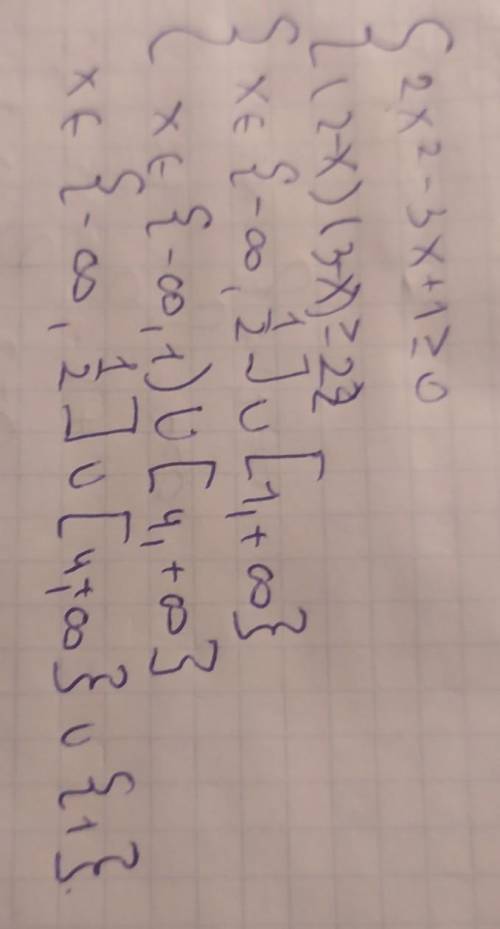 { 2x² - 3x + 1 ≥ 0
{ (2-x)(3-x) ≥ 2
{ x ∈ {-∞, 1/2] ∪ [1, +∞}
{ x ∈ {-∞, 1) ∪ [4, +∞}
x ∈ {-∞, 1/2] ∪ [4, +∞} ∪ {1}.